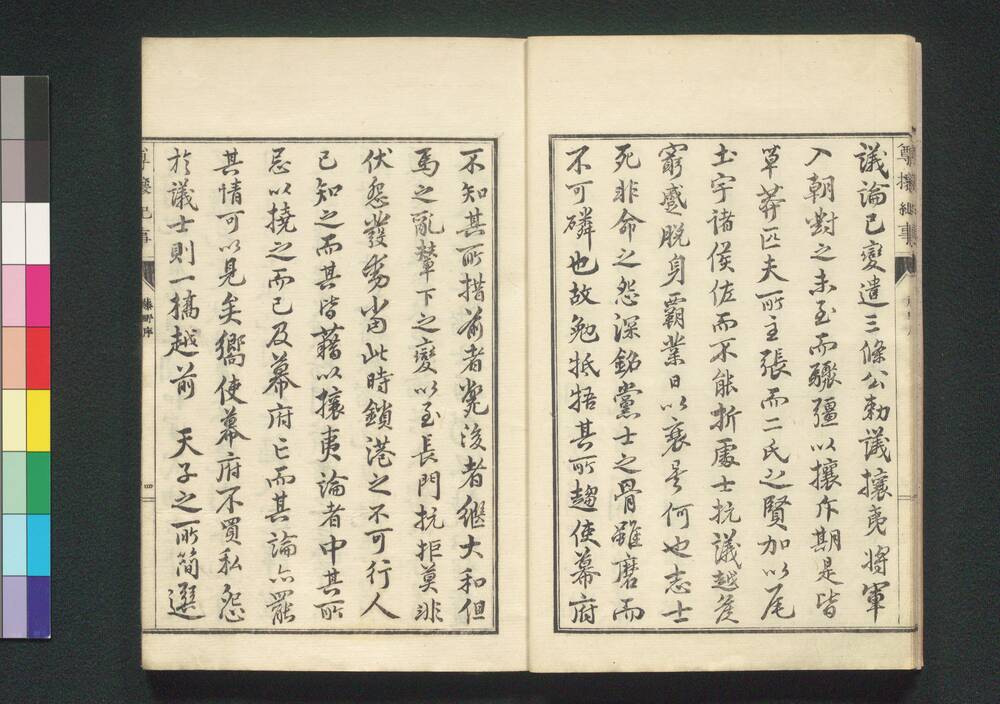 議論已變遣三條公勅議攘夷將軍
入朝對之未至而驟彊以攘斥期是皆
草莽匹夫所主張而二氏之賢加以尾
土宇諸侯佐而不能折處士抗議越矦
竆蹙脫身霸業日以衰是何也志士
死非命之怨深銘黨士之骨雖磨而
不可磷也故勉抵牾其所趨使幕府
不知其所措前者斃後者繼大和但
馬之亂輦下之變以至長門抗拒莫非
伏怨發露當此時鎖港之不可行人
已知之而其皆藉以攘夷論者中其所
忌以撓之而已及幕府亡而其論亦罷
其情可以見矣嚮使幕府不買私怨
於議士則一橋越前 天子之所簡選
尊攘紀事
藤野序
四